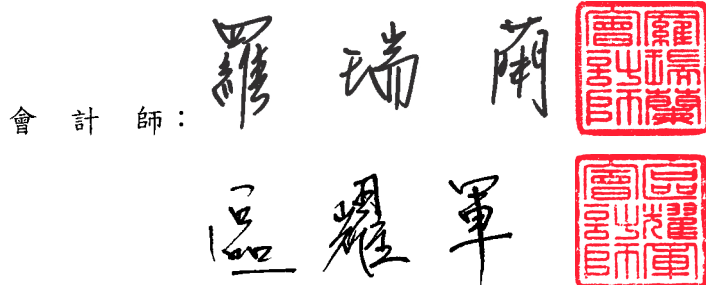 會計師：
羅瑞蘭
羅瑞蘭會計師
區耀軍
區耀軍會計師